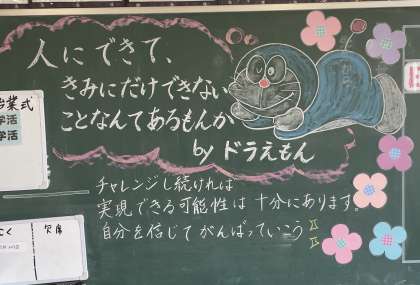 人にできて、
きみにだけできない
ことなんてあるもんか
by ドラえもん
チャレンジし続ければ
実現できる可能性は十分にあります。
自分を信じてがんばっていこう!!
業式
学活
学活
欠席